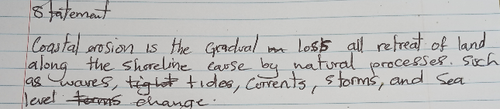 Statement
Coastal erosion is the gradual loss all retreat of land
along the shoreline cause by natural processes. Such
as waves, tides, Currents, storms, and Sea
level change.